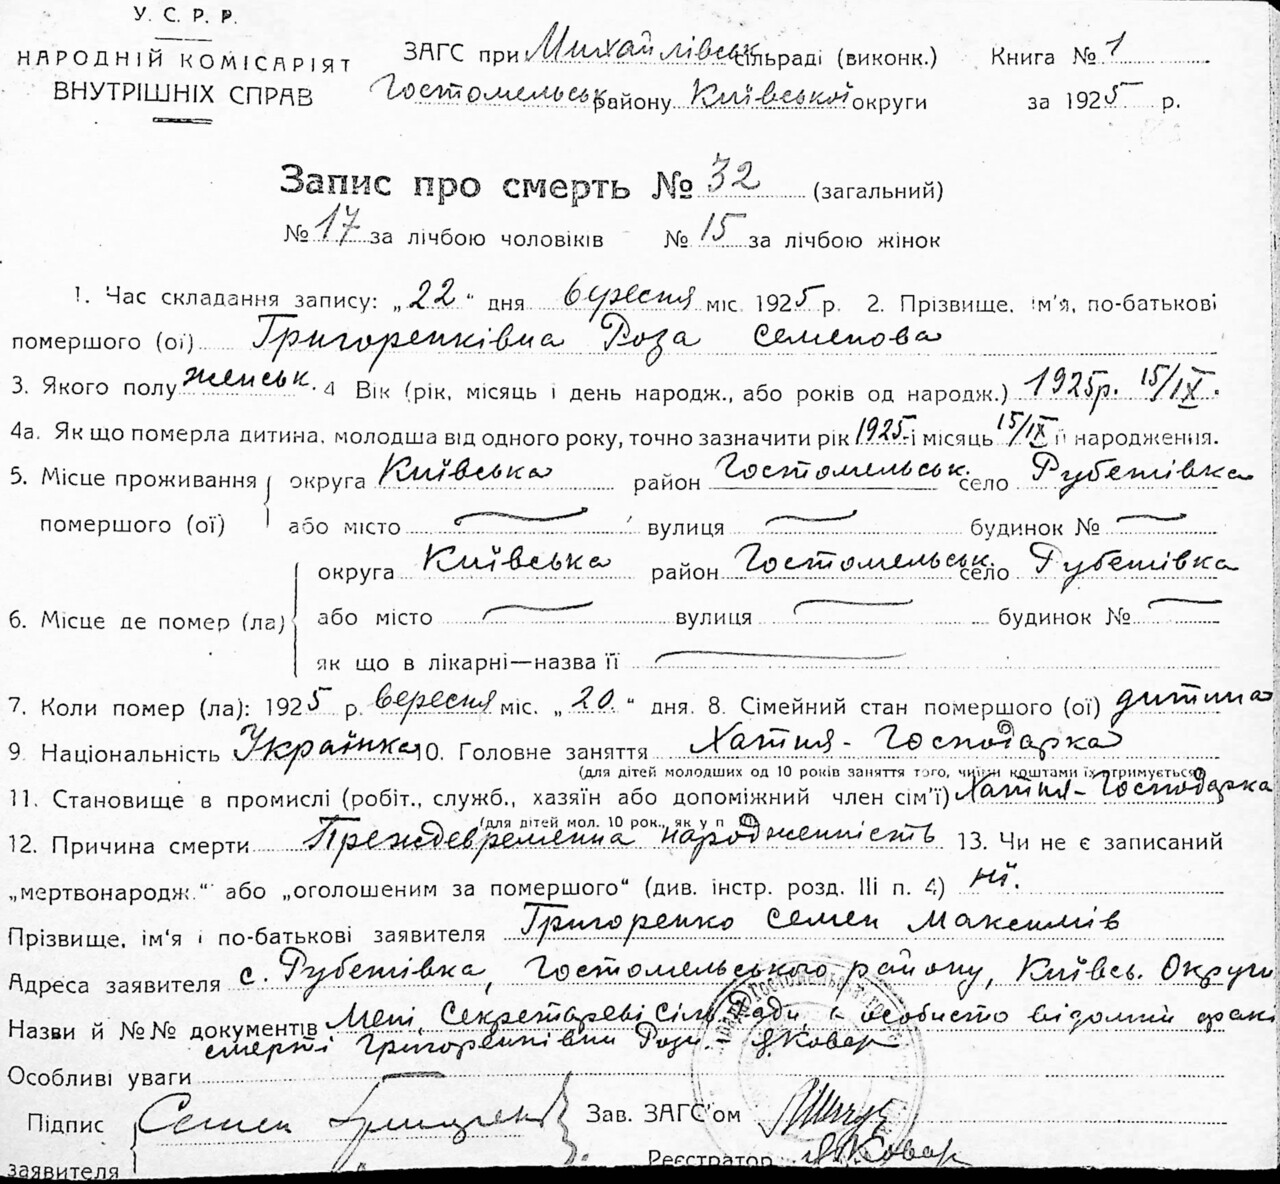 У. С. Р. Р.
НАРОДНІЙ КОМІСАРІЯТ
ВНУТРІШНІХ СПРАВ
ЗАГС при Михайлівськ. сільраді (виконк.) Книга № 1
Гостомельськ. району Київської округи за 1925 р.
Запис про смерть № 32 (загальний)
№ 17 за лічбою чоловіків № 15 за лічбою жінок
1. Час складання запису: „22“ дня вересня міс. 1925 р. 2. Прізвище, ім'я, по-батькові
помершого (ої) Григоренківна Роза Семенова
3. Якого полу женськ. 4 Вік (рік, місяць і день народж., або років од народж.) 1925р. 15/IX.
4а. Як що померла дитина, молодша від одного року, точно зазначити рік 1925 і місяць 15/IX її народження.
5. Місце проживання округа Київська район Гостомельськ. село Рубежівка
помершого (ої) або місто вулиця будинок №
округа Київська район Гостомельськ. село Рубежівка
6. Місце де помер (ла) або місто вулиця будинок №
як що в лікарні—назва її
7. Коли помер (ла): 1925 р. вересня міс. „20.“ дня. 8. Сімейний стан помершого (ої) дитина
9. Національність Українка 10. Головне заняття Хатня-Господарка
(для дітей молодших од 10 років заняття того, чиїми коштами їх отримується)
11. Становище в промислі (робіт., служб., хазяїн або допоміжний член сім'ї) Хатня-Господарка
(для дітей мол. 10 рок., як у п
12. Причина смерти Преждевременна народженність 13. Чи не є записаний
„мертвонародж.“ або „оголошеним за помершого“ (див. інстр. розд. III п. 4) ні.
Прізвище, ім'я і по-батькові заявителя Григоренко Семен Максимів
Адреса заявителя с. Рубежівка, Гостомельського району, Київсь. Округи
Назви й №№ документів Мені, Секретареві Сільради, особисто відомий факт
смерті Григоренківни Рози. Ковар
Особливі уваги
Підпис Семен Зав. ЗАГС'ом
заявителя Реєстратор Ковар